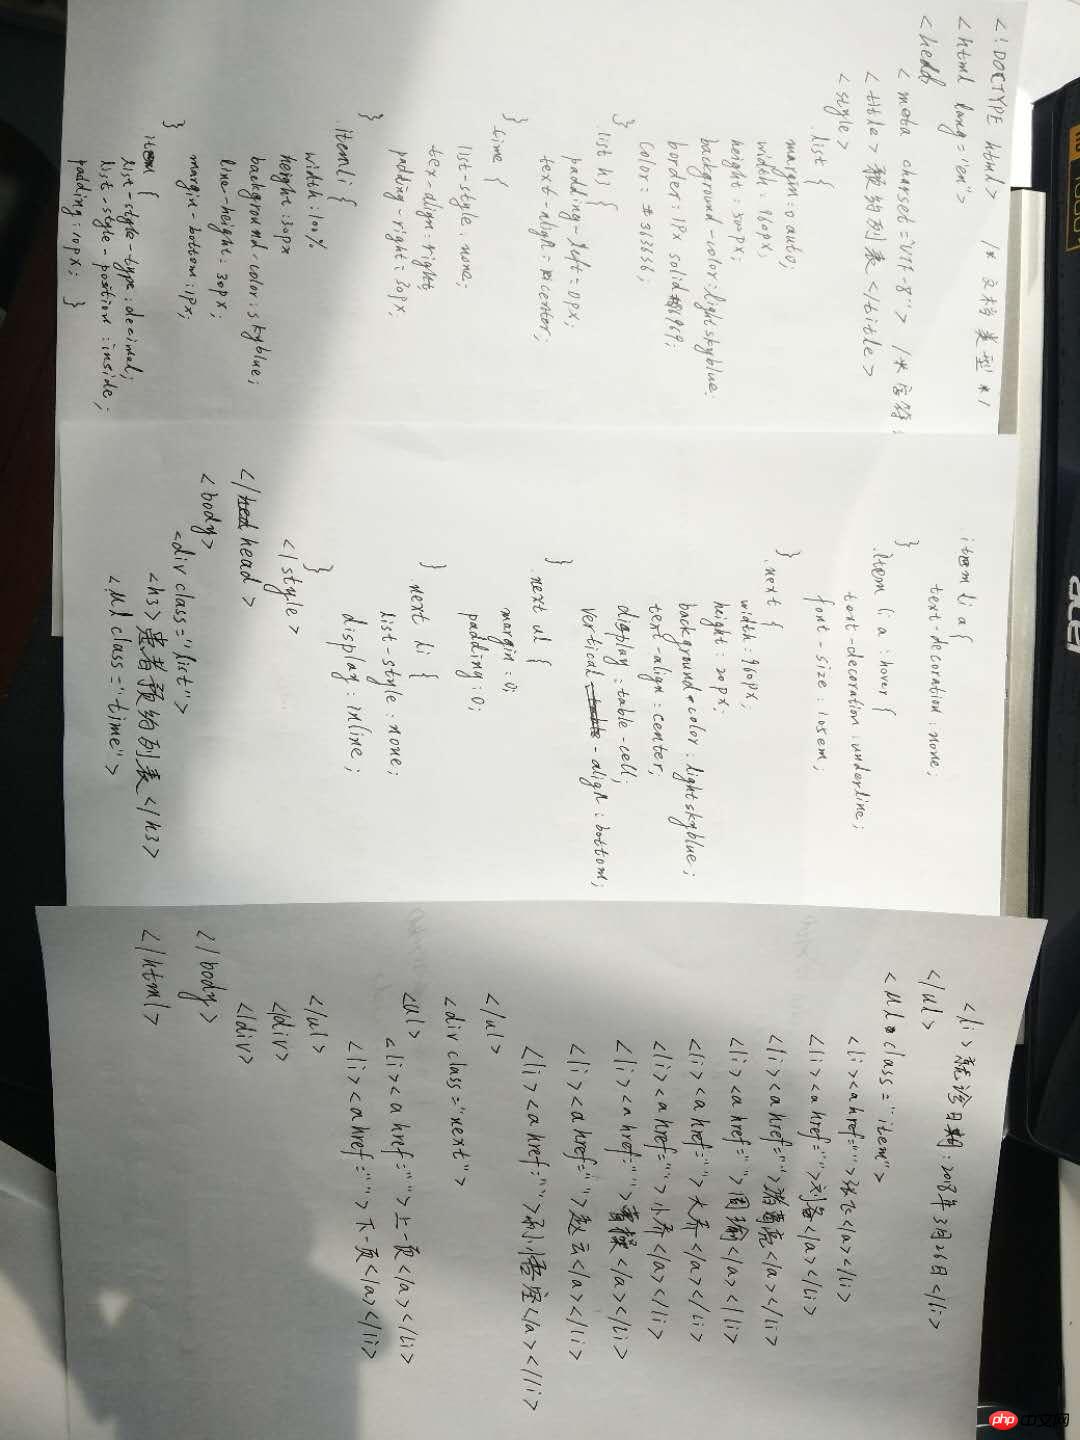 <!DOCTYPE html> /* 文档类型 */
<html lang="en">
<head>
<meta charset="UTF-8"> /* 字符
<title>预约列表</title>
<style>
.list {
margin:0 auto;
width:960px;
height:500px;
background-color:lightskyblue.
border:1px solid
color:#363636;
}
.list h3 {
padding-left:0px;
text-align:center;
}
.time {
list-style:none;
tex-align:right;
padding-right:30px;
}
.item li {
width:100%
height:30px
background-color:skyblue;
line-height:30px;
margin-bottom:1px;
}
.item {
list-style-type:decimal;
list-style-position:inside;
padding:10px; }
.item li a {
text-decoration:none;
}
.item li a:hover {
text-decoration:underline;
font-size:1.05em;
}
.next {
width:960px;
height:20px.
background-color:lightskyblue;
text-align:center;
display:table-cell;
vertical-align:bottom;
}
.next ul {
margin:0;
padding:0;
}
.next li {
list-style:none;
display:inline;
}
</style>
</head>
<body>
<div class="list">
<h3>患者预约列表</h3>
<ul class="time">
<li>就诊日期:2018年3月26日</li>
</ul>
<ul class="item">
<li><a href="">张飞</a></li>
<li><a href="">刘备</a></li>
<li><a href="">诸葛亮</a></li>
<li><a href="">周瑜</a></li>
<li><a href="">大乔</a></li>
<li><a href="">小乔</a></li>
<li><a href="">曹操</a></li>
<li><a href="">赵云</a></li>
<li><a href="">孙悟空</a></li>
</ul>
<div class="next">
<ul>
<li><a href="">上一页</a></li>
<li><a href="">下一页</a></li>
</ul>
</div>
</div>
</body>
</html>
acer
php 中文网